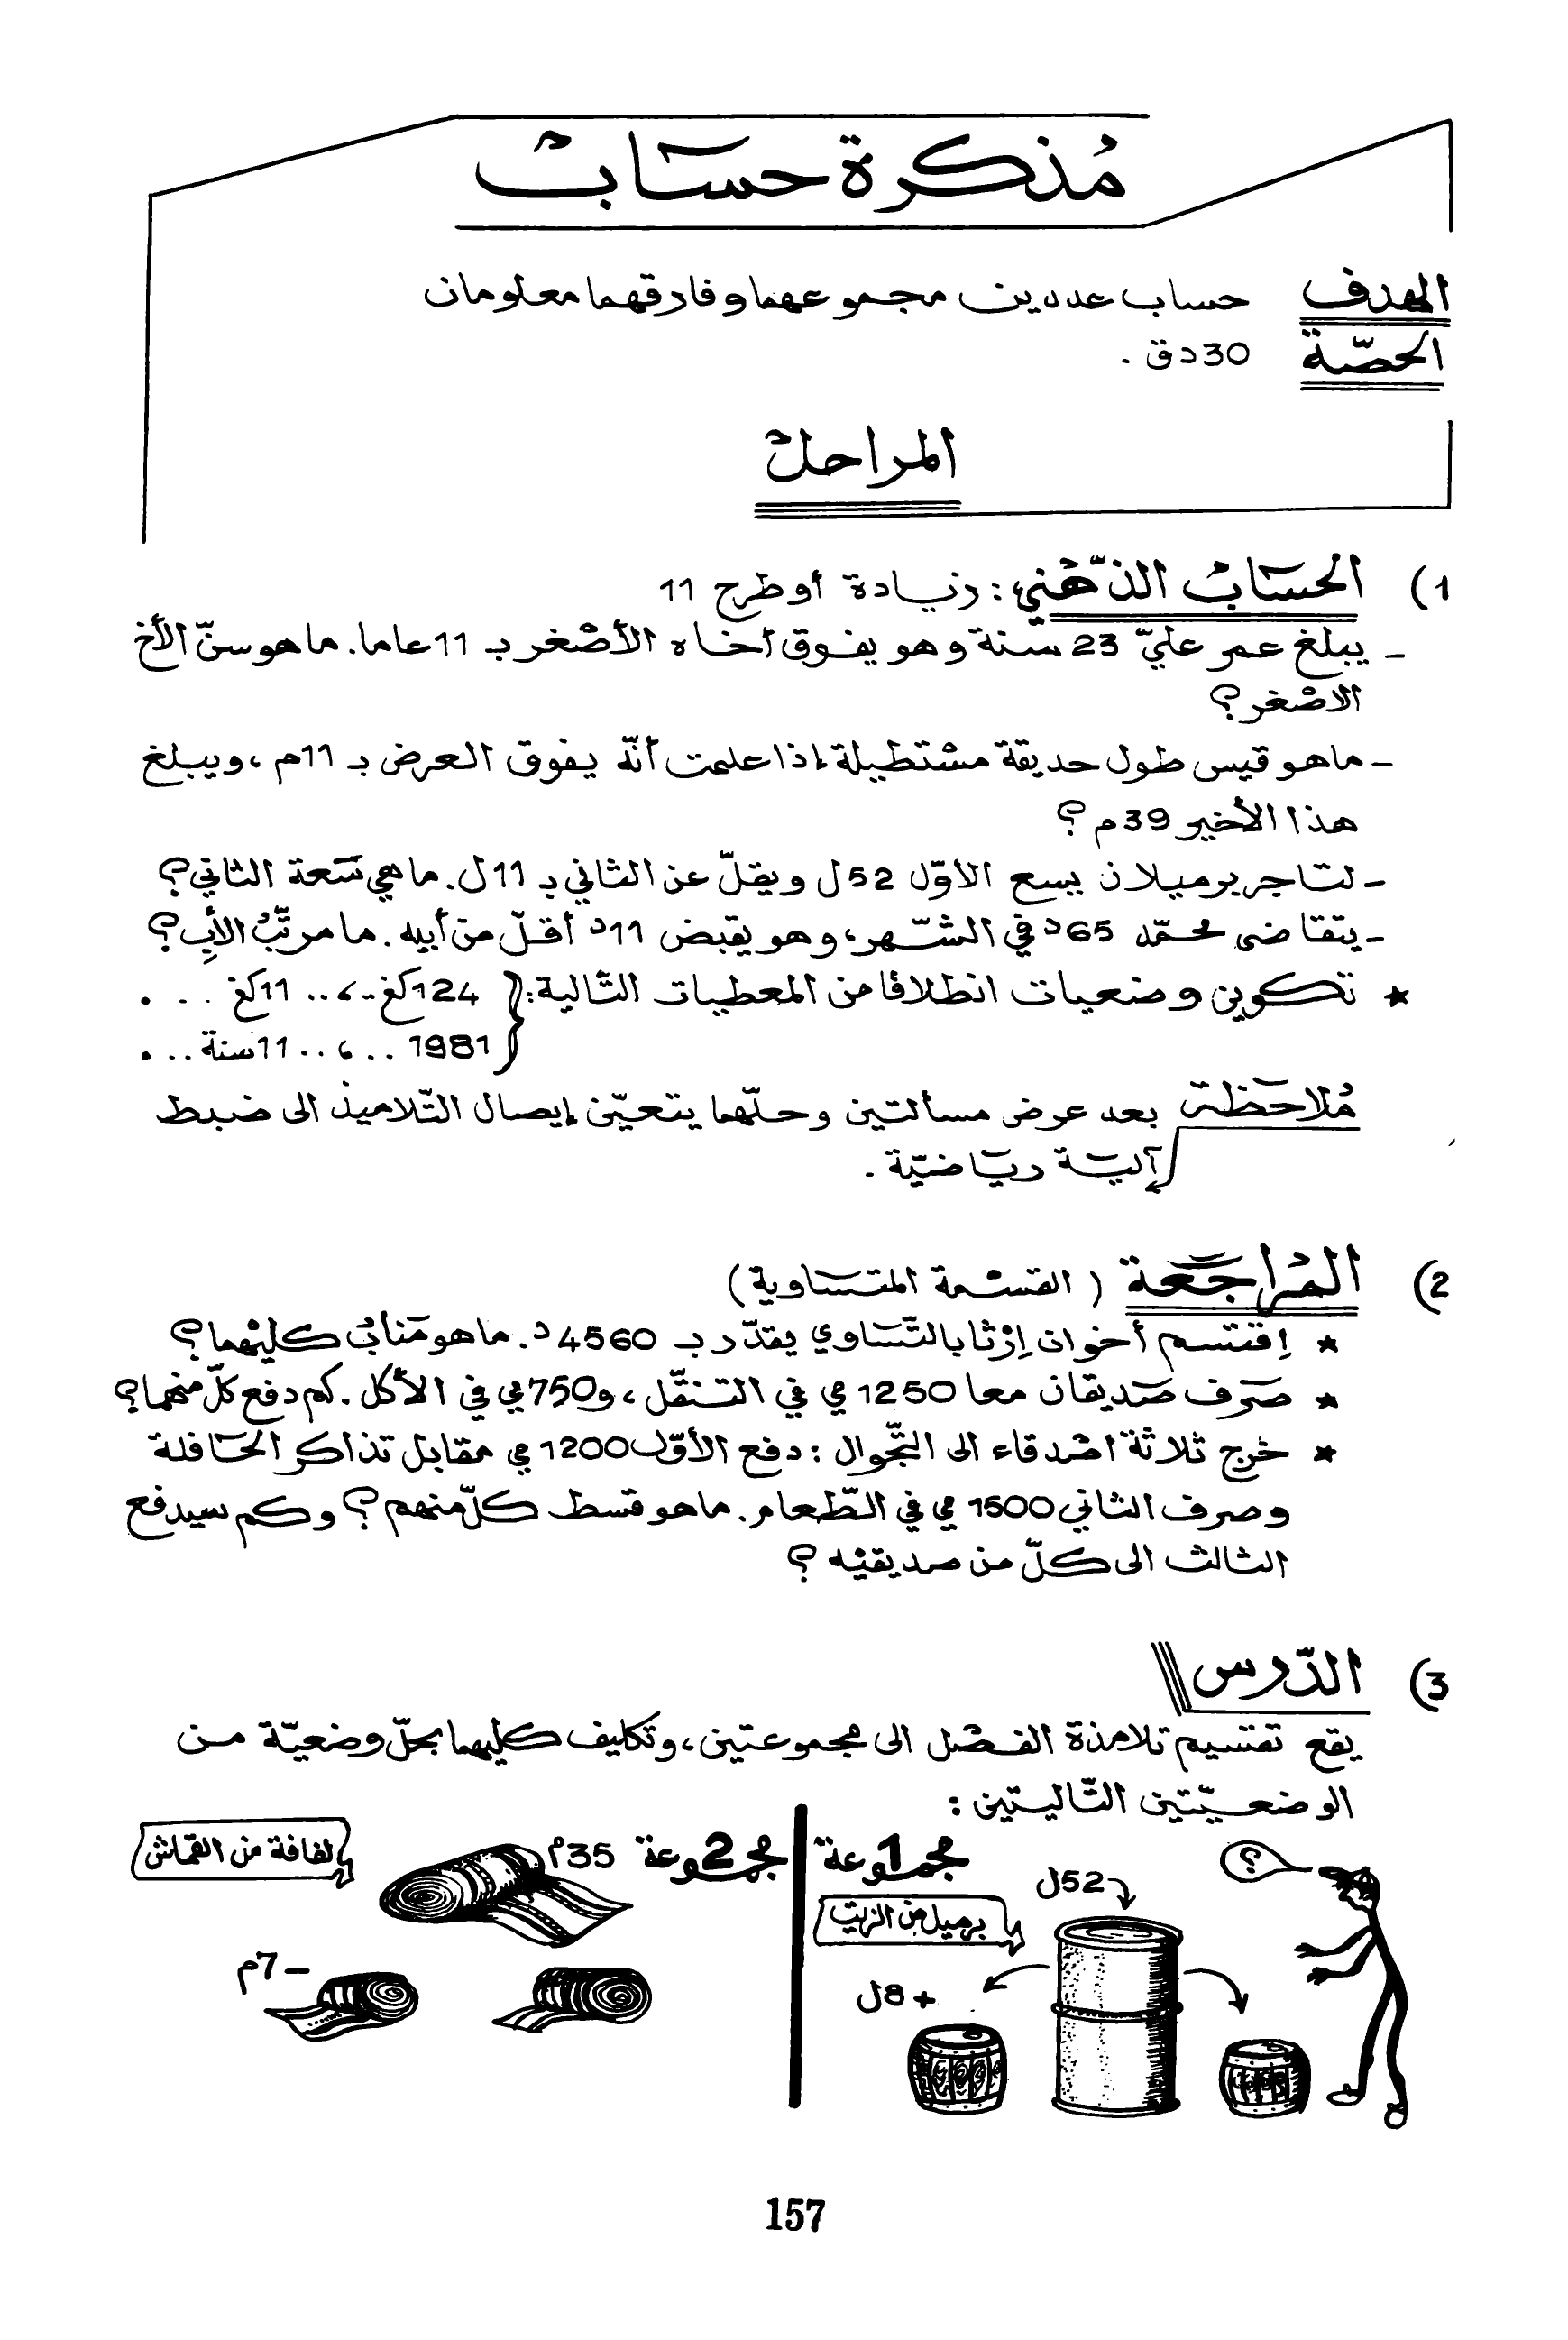 مُذكرة حسَابْ
الهدف حساب عددين مجموعهما وفارقهما معلومان
الحصّة 30 دق .
المراحلْ
1) الحسَابْ الذّهْني : زيادة أو طرح 11
- يبلغ عمر عليّ 23 سنة وهو يفوق أخاه الأصْغر بـ 11 عاما. ما هو سنّ الأخ
الاصْغر ؟
- ما هو قيس طول حديقة مسْتطيلة إذا علمت أنّه يفوق العرض بـ 11م ، ويبلغ
هذا الأخير 39 م ؟
- لتاجر برميلان يسع الأوّل 52ل ويقلّ عن الثاني بـ 11ل. ما هي سَعة الثاني ؟
- يتقاضى محمّد 65د في الشّهر، وهو يقبض 11د أقلّ من أبيه. ما مرتّبُ الأبِ ؟
★ تكوين وضعيات انطلاقا من المعطيات التّالية : { 124 كغ .. ، .. 11 كغ . . .
1981 . . ، . . 11 سنة . . .
مُلاحَظة بعد عرض مسألتين وحلّهما يتعيّن إيصال التّلاميذ الى ضبط
آليَة ريَاضيّة .
2) المُراجَعة ( القسْمة المتسَاوية )
★ إقتسم أخوان إرْثا بالتّسَاوي يقدّر بـ 4560 د. ما هو مَنابُ كليْهما ؟
★ صَرف صَديقان معا 1250 مي في التنقّل ، و750 مي في الأكل . كم دفع كلّ منهما ؟
★ خرج ثلاثة اصْدقاء الى التّجّوال : دفع الأوّل 1200 مي مقابل تذاكر الحَافلة
وصرف الثاني 1500 مي في الطّعام. ما هو قسط كلّ منهم ؟ وكم سيدفع
الثالث الى كلّ من صديقيْه ؟
3) الدّرس
يقع تقسيم تلامذة الفصْل الى مجموعتين، وتكليف كليهما بحلّ وضعيّة من
الوضعيّتين التّاليتين :
مجموعة 1
؟
52ل
برميل من الزيت
+ 8ل
مجموعة 2
35م
لفافة من القماش
- 7م
157